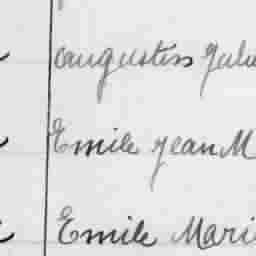 augustin Juli
Emile jean M
Emile Mari